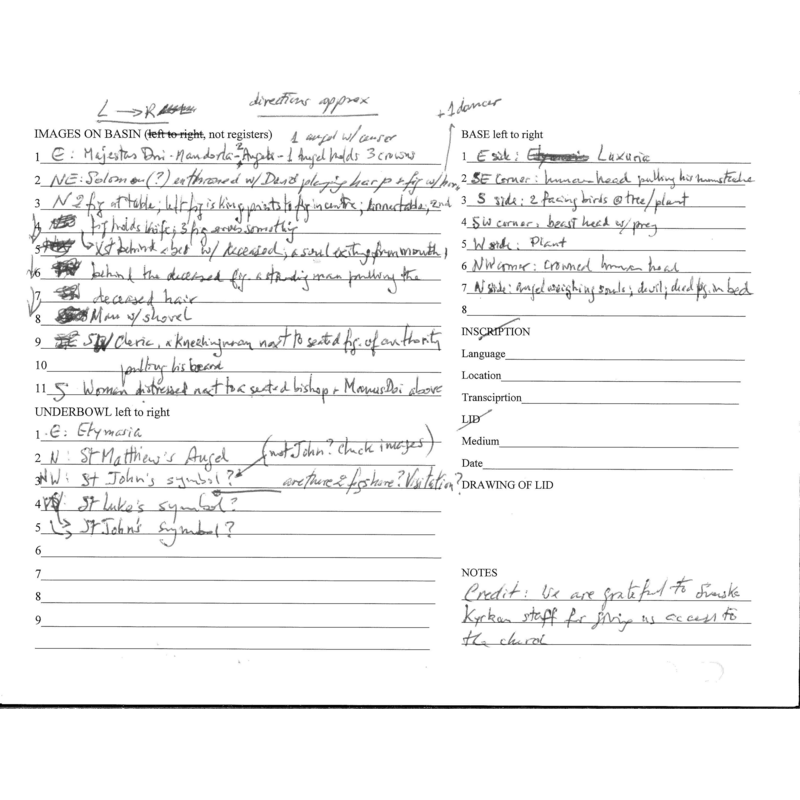 L → R
directions approx
+1 dancer
IMAGES ON BASIN (left to right, not registers)
1 angel w/ censer
1 E: Majestas Dni - Mandorla - 2 Angels - 1 Angel holds 3 crowns
2 NE: Solomon(?) enthroned w/ David playing harp + fig w/ horn
3 N 2 fig at table; left fig is king points to fig in centre; 2nd
4 fig holds knife; 3 fig serves something
5 behind a bed w/ deceased; a soul exiting from mouth;
6 behind the deceased fig. a standing man pulling the
7 deceased hair
8 Man w/ shovel
9 SW Cleric, a kneeling man next to seated fig. of authority
10 pulling his beard
11 S Woman distressed next to a seated bishop + Manus Dei above
UNDERBOWL left to right
1 E: Etymasia
2 N: St Matthew's Angel (not John? check images)
3 NW: St John's symbol? are there 2 figs here? Visitation?
4 St Luke's symbol?
5 St John's symbol?
6
7
8
9
BASE left to right
1 E side: Luxuria
2 SE corner: human head pulling his mustache
3 S side: 2 facing birds @ tree/plant
4 SW corner, beast head w/ prey
5 W side: Plant
6 NW corner: crowned human head
7 N side: angel weighing souls; devil; dead fig. in bed
8
INSCRIPTION
Language
Location
Transciprtion
LID
Medium
Date
DRAWING OF LID
NOTES
Credit: We are grateful to Svenska
Kyrkan staff for giving us access to
the church